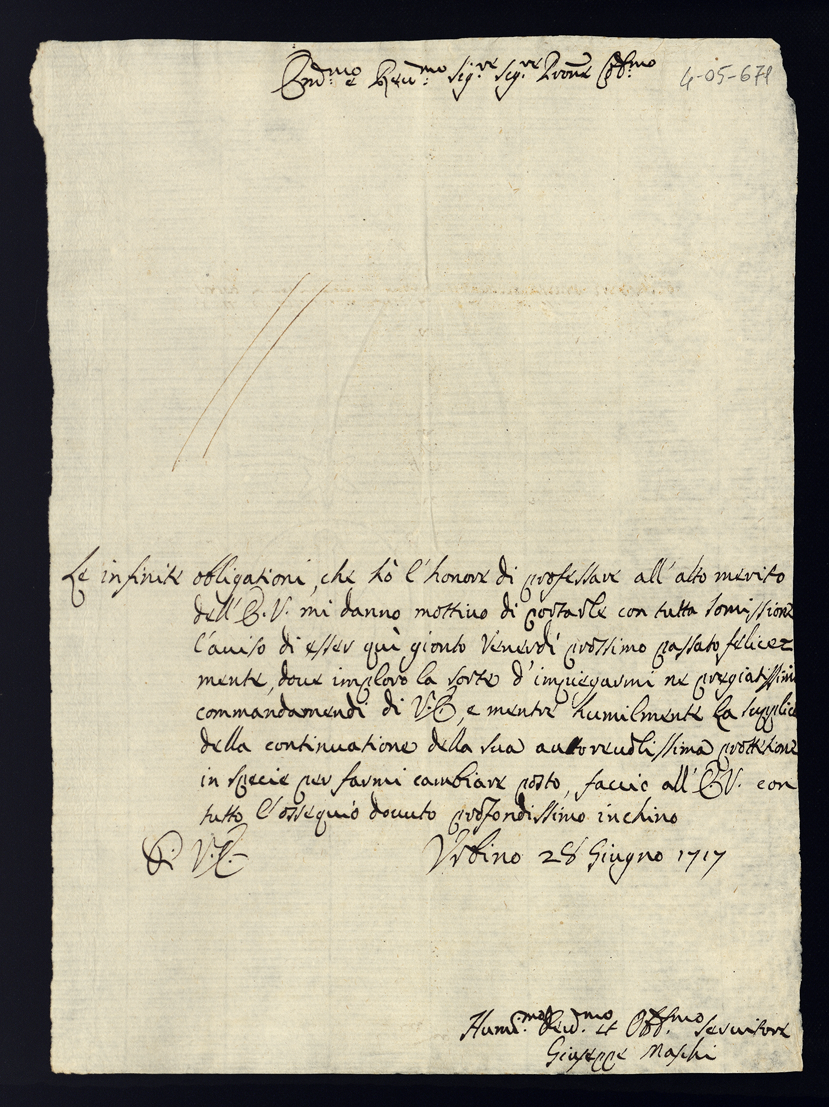 Em.mo e Reu.mo Sig.re Sig.re Prone Col.mo
4-05-671
Le infinite obligationi, che hò l'honore di professare all'alto merito
dell'E.V. mi danno mottiuo di portarle con tutta somissione
l'auiso di esser quì gionto Venerdí prossimo passato felice=
mente, doue imploro la sorte d'impiegarmi ne pregiatissimi
commandamendi di V.E., e mentre humilmente la supplico
della continuatione della sua autoreuolissima prottetione
in specie per farmi cambiare posto, faccio all'E.V. con
tutto l'ossequio douuto profondissimo inchino
D. V.E. Vrbino 28 Giugno 1717
Humil.mo Deu.mo et Obl.mo seruitore
Giuseppe Maschi